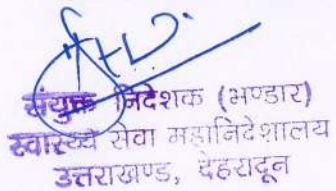 संयुक्त निदेशक (भण्डार)
स्वास्थ्य सेवा महानिदेशालय
उत्तराखण्ड, देहरादून